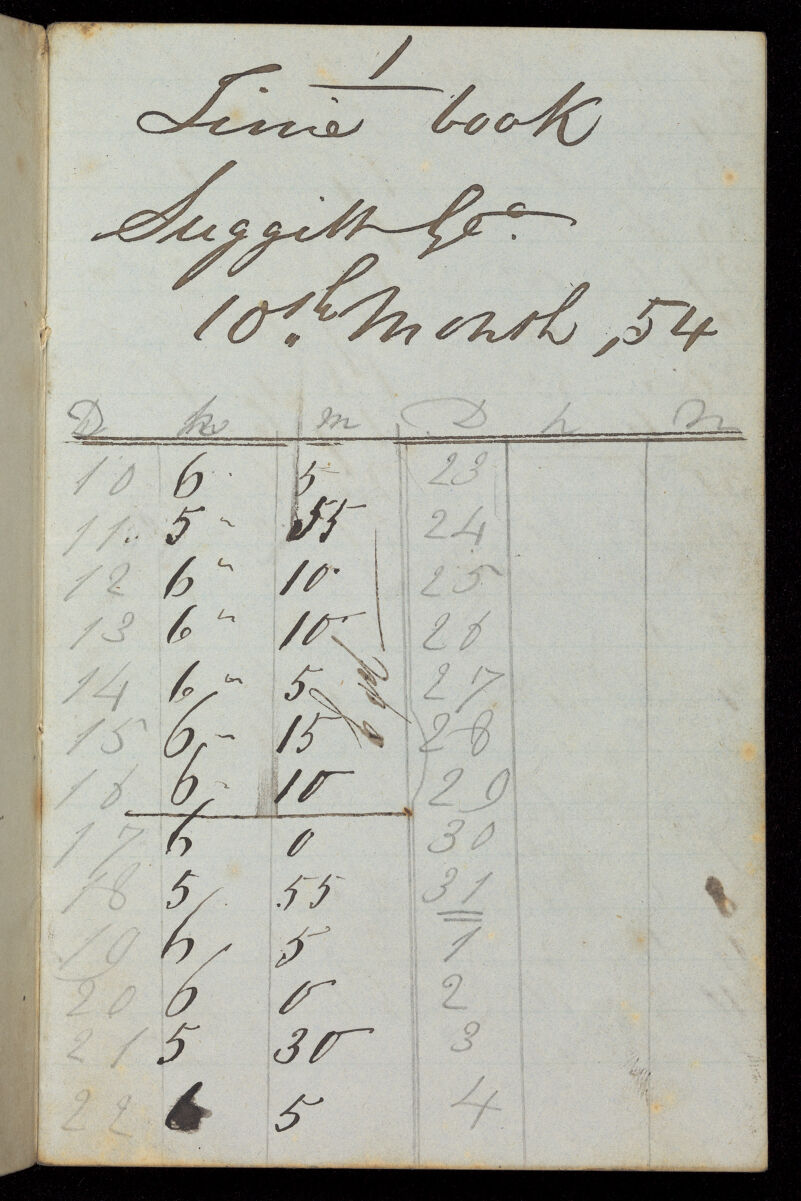 1
Time book
Suggitt Geo.
10th Month, 54
D h m D h m
10 6 5 23
11 5 " 55 24
12 6 " 10 25
13 6 " 10 26
14 6 " 5 27
15 6 " 15 28
16 6 " 10 29
17 6 0 30
18 5 55 31
19 6 5 1
20 6 0 2
21 5 30 3
22 6 5 4